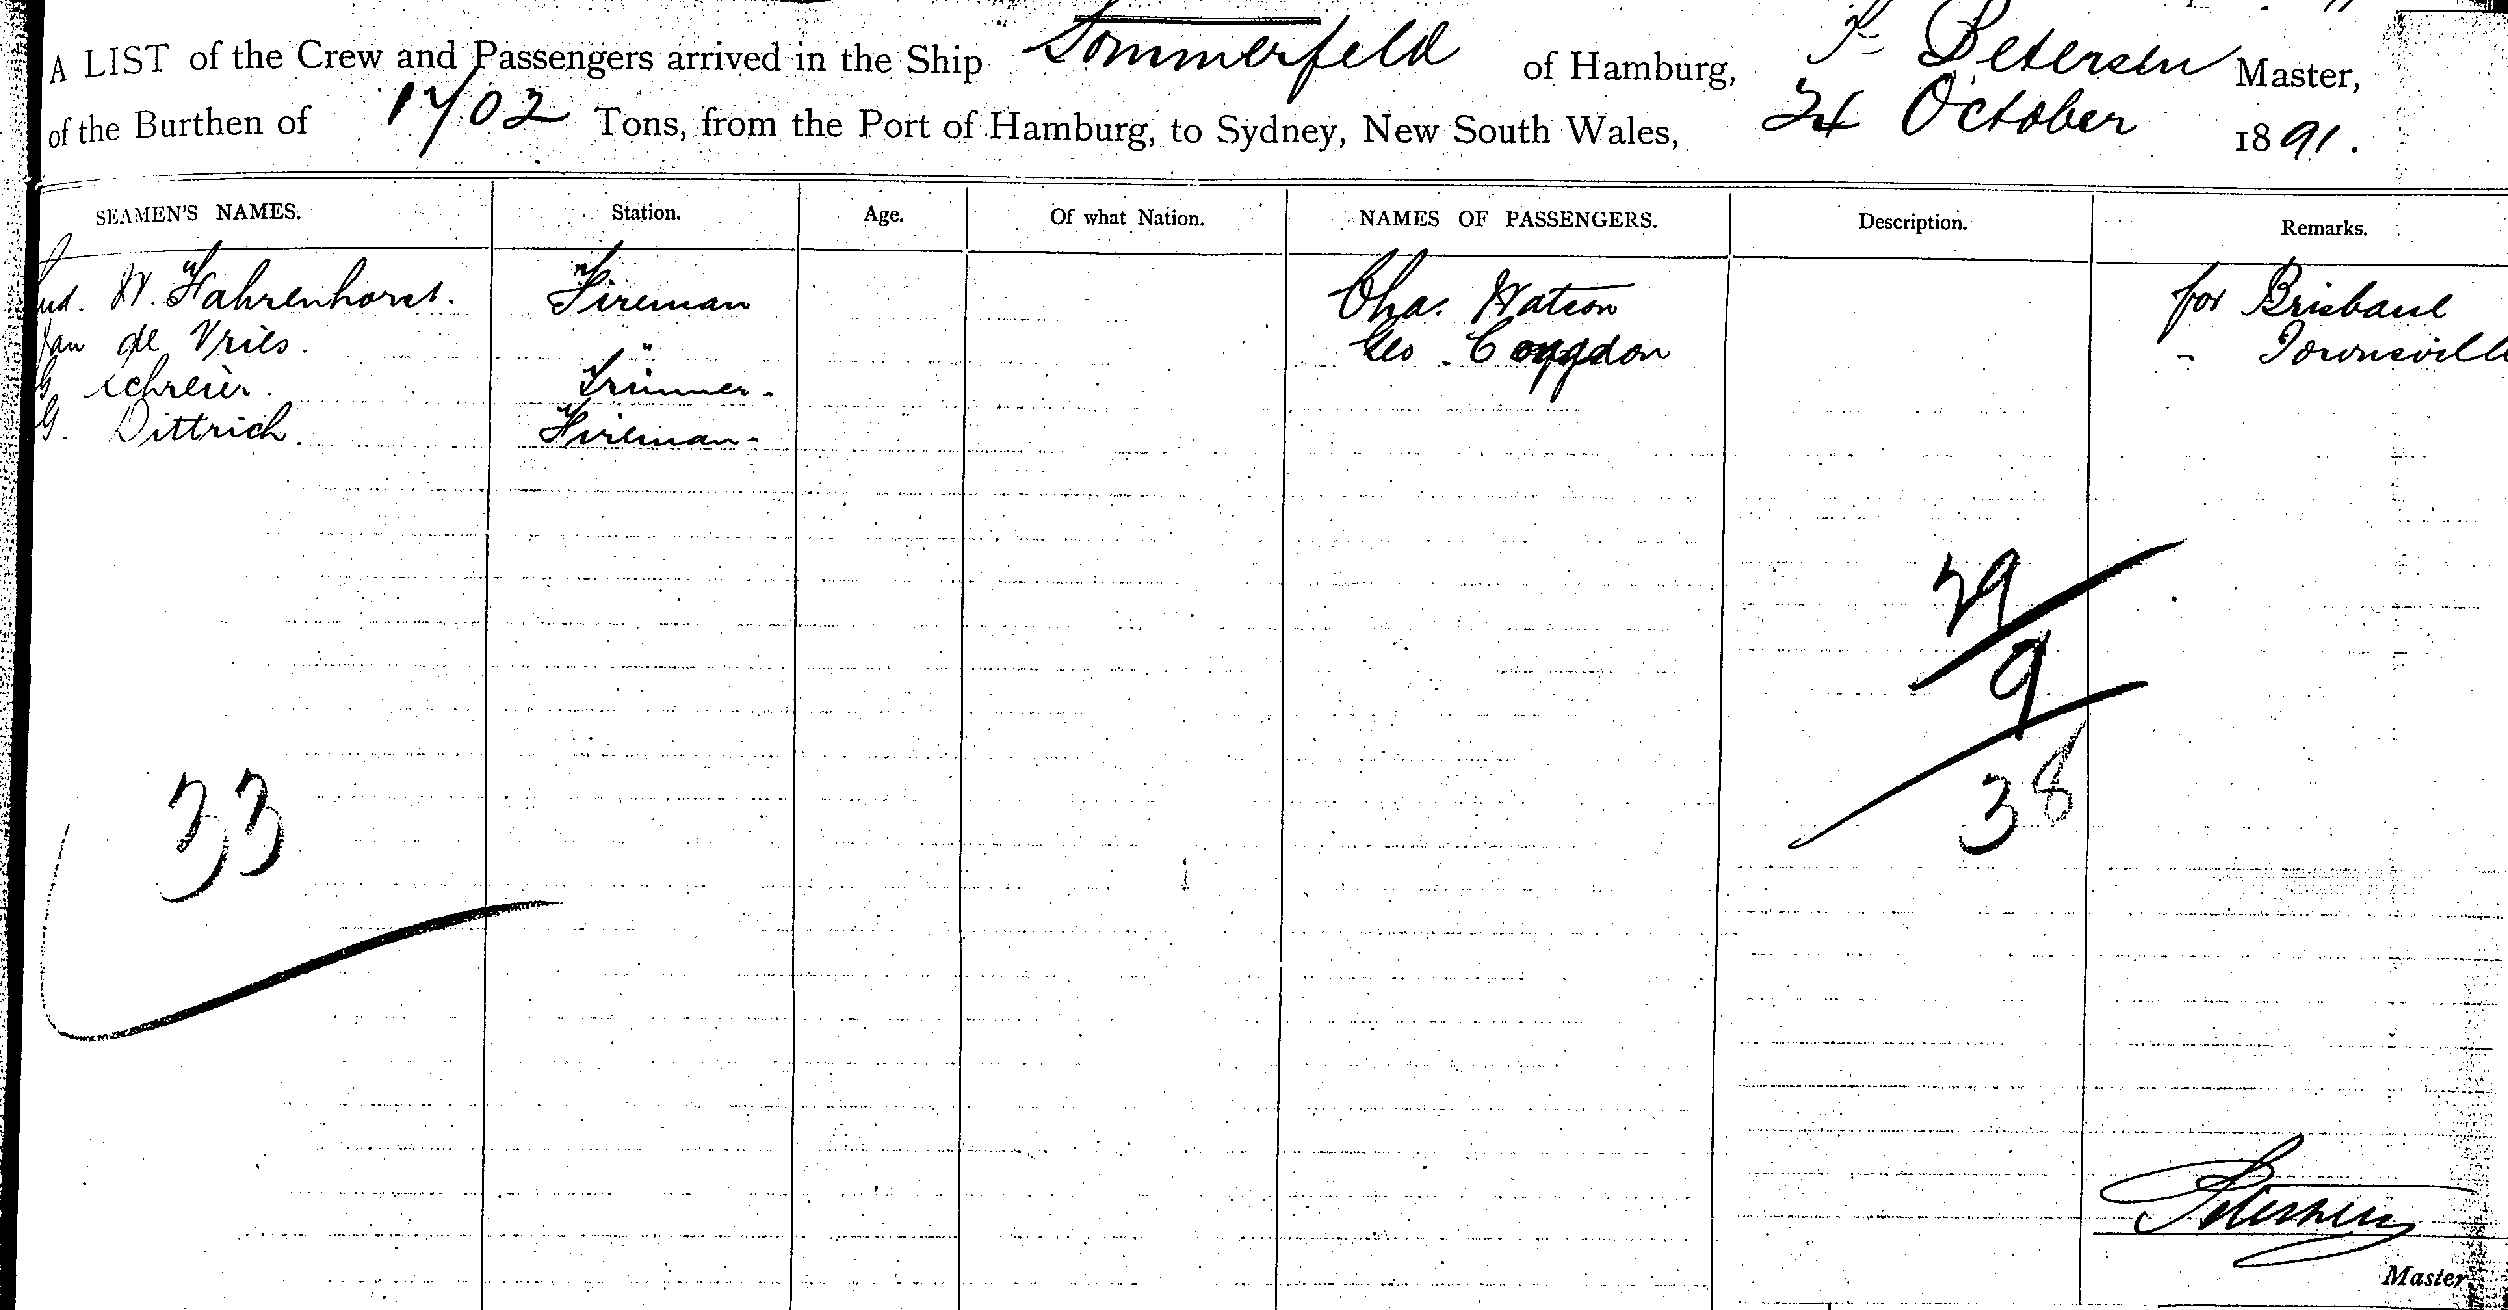 A LIST of the Crew and Passengers arrived in the Ship Sommerfeld of Hamburg, Petersen Master,
of the Burthen of 1702 Tons, from the Port of Hamburg, to Sydney, New South Wales, 24 October 1891.
SEAMEN'S NAMES. Station. Age. Of what Nation. NAMES OF PASSENGERS. Description. Remarks.
W. Fahrenhorst. Fireman Chas. Watson for Brisbane
Jan de Vries. " Geo Congdon - Townsville
G Schreier. Trimmer.
G. Dittrich. Fireman-
29
9
38
33
Petersen
Master